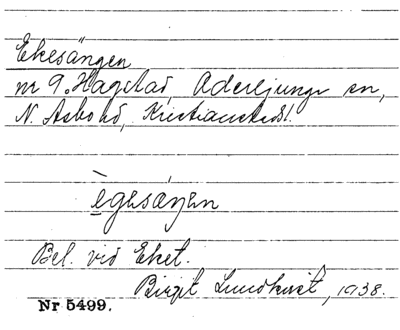 Ekesängen
nr 9. Hagstad, Aderljunga sn,
N. Åsbo hd, Kristianstads l.
ègesáŋen
Bel. vid Eket.
Birgit Lundkvist, 1938.
Nr 5499.